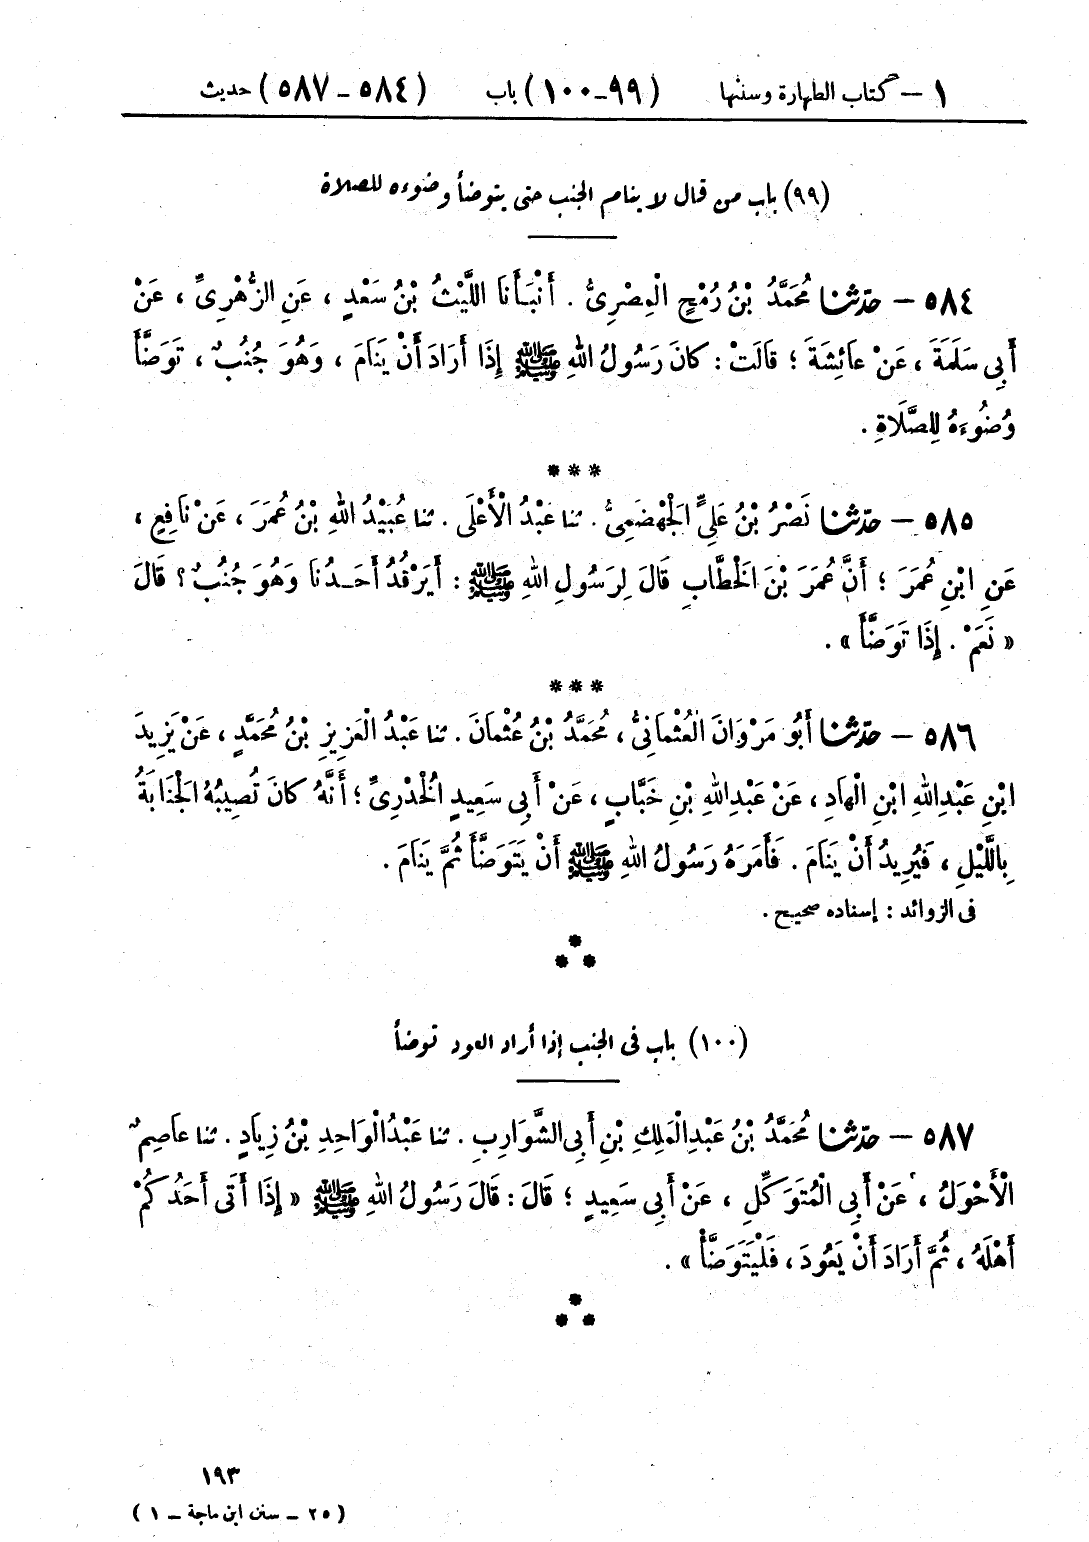 ١ — كتاب الطهارة وسننها (٩٩-١٠٠) باب (٥٨٤ - ٥٨٧) حديث
(٩٩) باب من قال لا ينام الجنب حتى يتوضأ وضوءه للصلاة
٥٨٤ — حَدَّثَنَا مُحَمَّدُ بْنُ رُمْحٍ الْمِصْرِىُّ . أَنْبَأَنَا اللَّيْثُ بْنُ سَعْدٍ ، عَنِ الزُّهْرِىِّ ، عَنْ
أَبِى سَلَمَةَ ، عَنْ عَائِشَةَ ؛ قَالَتْ : كَانَ رَسُولُ اللهِ ﷺ إِذَا أَرَادَ أَنْ يَنَامَ ، وَهُوَ جُنُبٌ ، تَوَضَّأَ
وُضُوءَهُ لِلصَّلَاةِ .
***
٥٨٥ — حَدَّثَنَا نَصْرُ بْنُ عَلِىٍّ الْجَهْضَمِىُّ . ثنا عَبْدُ الْأَعْلَى . ثنا عُبَيْدُ اللهِ بْنُ عُمَرَ ، عَنْ نَافِعٍ ،
عَنِ ابْنِ عُمَرَ ؛ أَنَّ عُمَرَ بْنَ الْخَطَّابِ قَالَ لِرَسُولِ اللهِ ﷺ : أَيَرْقُدُ أَحَدُنَا وَهُوَ جُنُبٌ ؟ قَالَ
« نَعَمْ . إِذَا تَوَضَّأَ » .
***
٥٨٦ — حَدَّثَنَا أَبُو مَرْوَانَ الْعُثْمَانِىُّ ، مُحَمَّدُ بْنُ عُثْمَانَ . ثنا عَبْدُ الْعَزِيزِ بْنُ مُحَمَّدٍ ، عَنْ يَزِيدَ
ابْنِ عَبْدِ اللهِ ابْنِ الْهَادِ ، عَنْ عَبْدِ اللهِ بْنِ خَبَّابٍ ، عَنْ أَبِى سَعِيدٍ الْخُدْرِىِّ ؛ أَنَّهُ كَانَ تُصِيبُهُ الْجَنَابَةُ
بِاللَّيْلِ ، فَيُرِيدُ أَنْ يَنَامَ . فَأَمَرَهُ رَسُولُ اللهِ ﷺ أَنْ يَتَوَضَّأَ ثُمَّ يَنَامَ .
فى الزوائد : إسناده صحيح .
***
(١٠٠) باب فى الجنب إذا أراد العود توضأ
٥٨٧ — حَدَّثَنَا مُحَمَّدُ بْنُ عَبْدِ الْمَلِكِ بْنِ أَبِى الشَّوَارِبِ . ثنا عَبْدُ الْوَاحِدِ بْنُ زِيَادٍ . ثنا عَاصِمٌ
الْأَحْوَلُ ، عَنْ أَبِى الْمُتَوَكِّلِ ، عَنْ أَبِى سَعِيدٍ ؛ قَالَ : قَالَ رَسُولُ اللهِ ﷺ « إِذَا أَتَى أَحَدُكُمْ
أَهْلَهُ ، ثُمَّ أَرَادَ أَنْ يَعُودَ ، فَلْيَتَوَضَّأْ » .
***
١٩٣
(٢٥ - سنن ابن ماجة - ١)